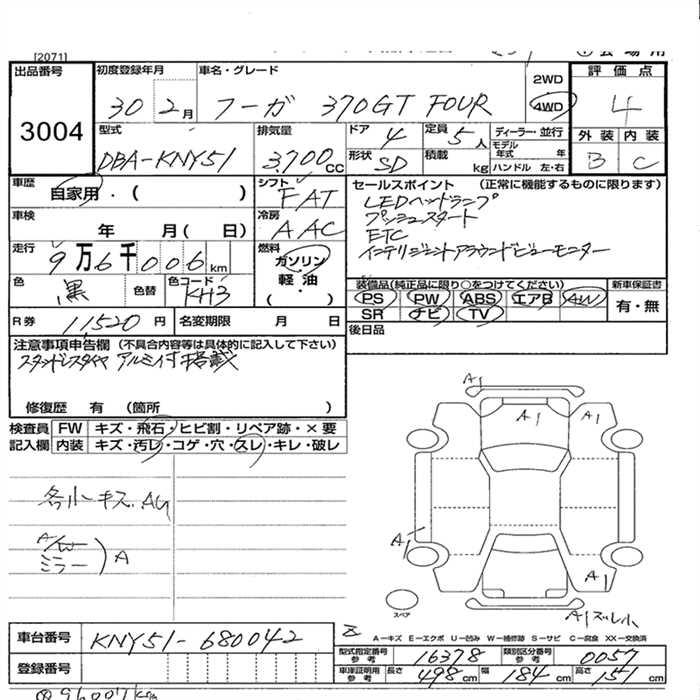 [2071]
出品番号
3004
初度登録年月 車名・グレード
30 2月 フーガ 370GT FOUR
2WD
4WD
評価点
4
外装 内装
B C
型式 排気量 ドア 定員 ディーラー・並行
DBA-KNY51 3,700cc 4 5人
モデル年式 年
形状 SD 積載 kg ハンドル 左・右
車歴 自家用・( )
シフト FAT
車検 年 月( 日)
冷房 AAC
走行 9万6千006km
燃料 ガソリン 軽油 ・( )
色 黒 色替 色コード KH3
R券 11,520円 名変期限 月 日
セールスポイント (正常に機能するものに限ります)
LEDヘッドランプ
プッシュスタート
ETC
インテリジェントアラウンドビューモニター
装備品(純正品に限り○をつけてください) 新車保証書
PS PW ABS エアB AW 有・無
SR ナビ TV
後日品
注意事項申告欄 (不具合内容等は具体的に記入して下さい)
スタッドレスタイヤ アルミ付 搭載
修復歴 有 (箇所 )
検査員 FW キズ・飛石・ヒビ割・リペア跡・×要
記入欄 内装 キズ・汚レ・コゲ・穴・スレ・キレ・破レ
各小キズ. AU
A/W
ミラー ) A
A1
A1
A1
A1
スペア
A1スレ小
A−キズ E−エクボ U−凹み W−補修跡 S−サビ C−腐食 XX−交換済
車台番号 KNY51-680042
登録番号
型式指定番号 参考 16378 類別区分番号 参考 0057
車庫証明用 参考 長さ 498cm 幅 184cm 高さ 151cm